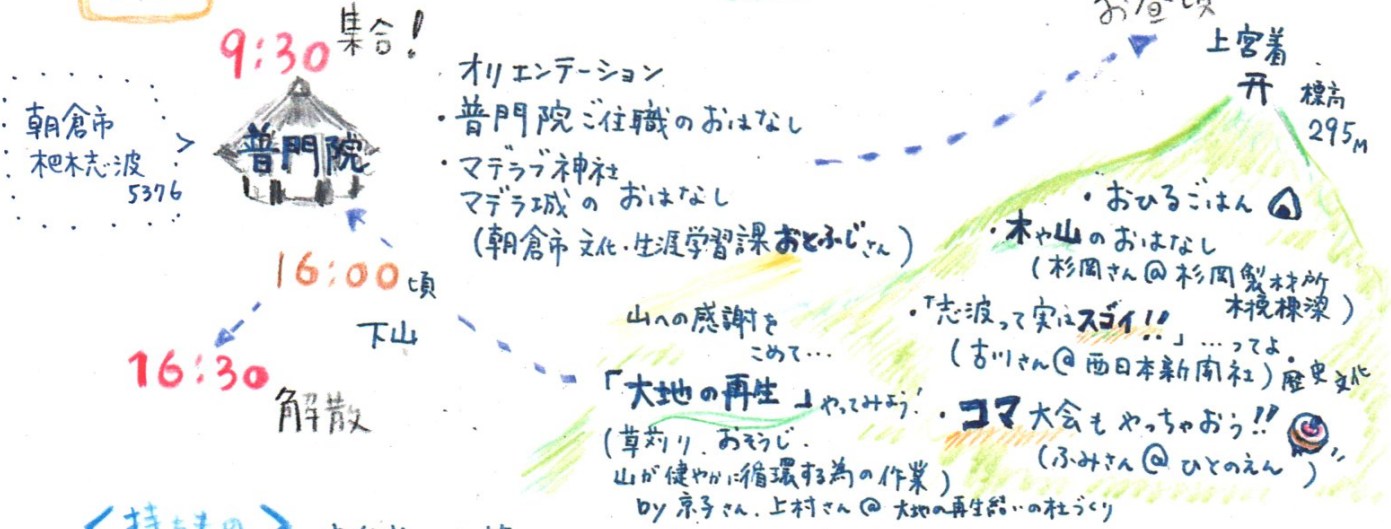 9:30 集合!
朝倉市
杷木志波
5376
普門院
オリエンテーション
・普門院ご住職のおはなし
・マデラブ神社
マデラ城のおはなし
(朝倉市文化・生涯学習課おとふじさん)
お昼頃
上宮着
標高
295M
・おひるごはん
・木や山のおはなし
(杉岡さん@杉岡製材所
)
・「志波って実はスゴイ!!」…ってよ。
(古川さん@西日本新聞社)歴史文化
・コマ大会もやっちゃおう!!
(ふみさん@ひとのえん)
山への感謝を
こめて…
「大地の再生」やってみよう!
(草刈り、おそうじ.
山が健やかに循環する為の作業)
by 京子さん、上村さん@大地の再生結いの杜づくり
16:00頃
下山
16:30
解散
<持ちもの>